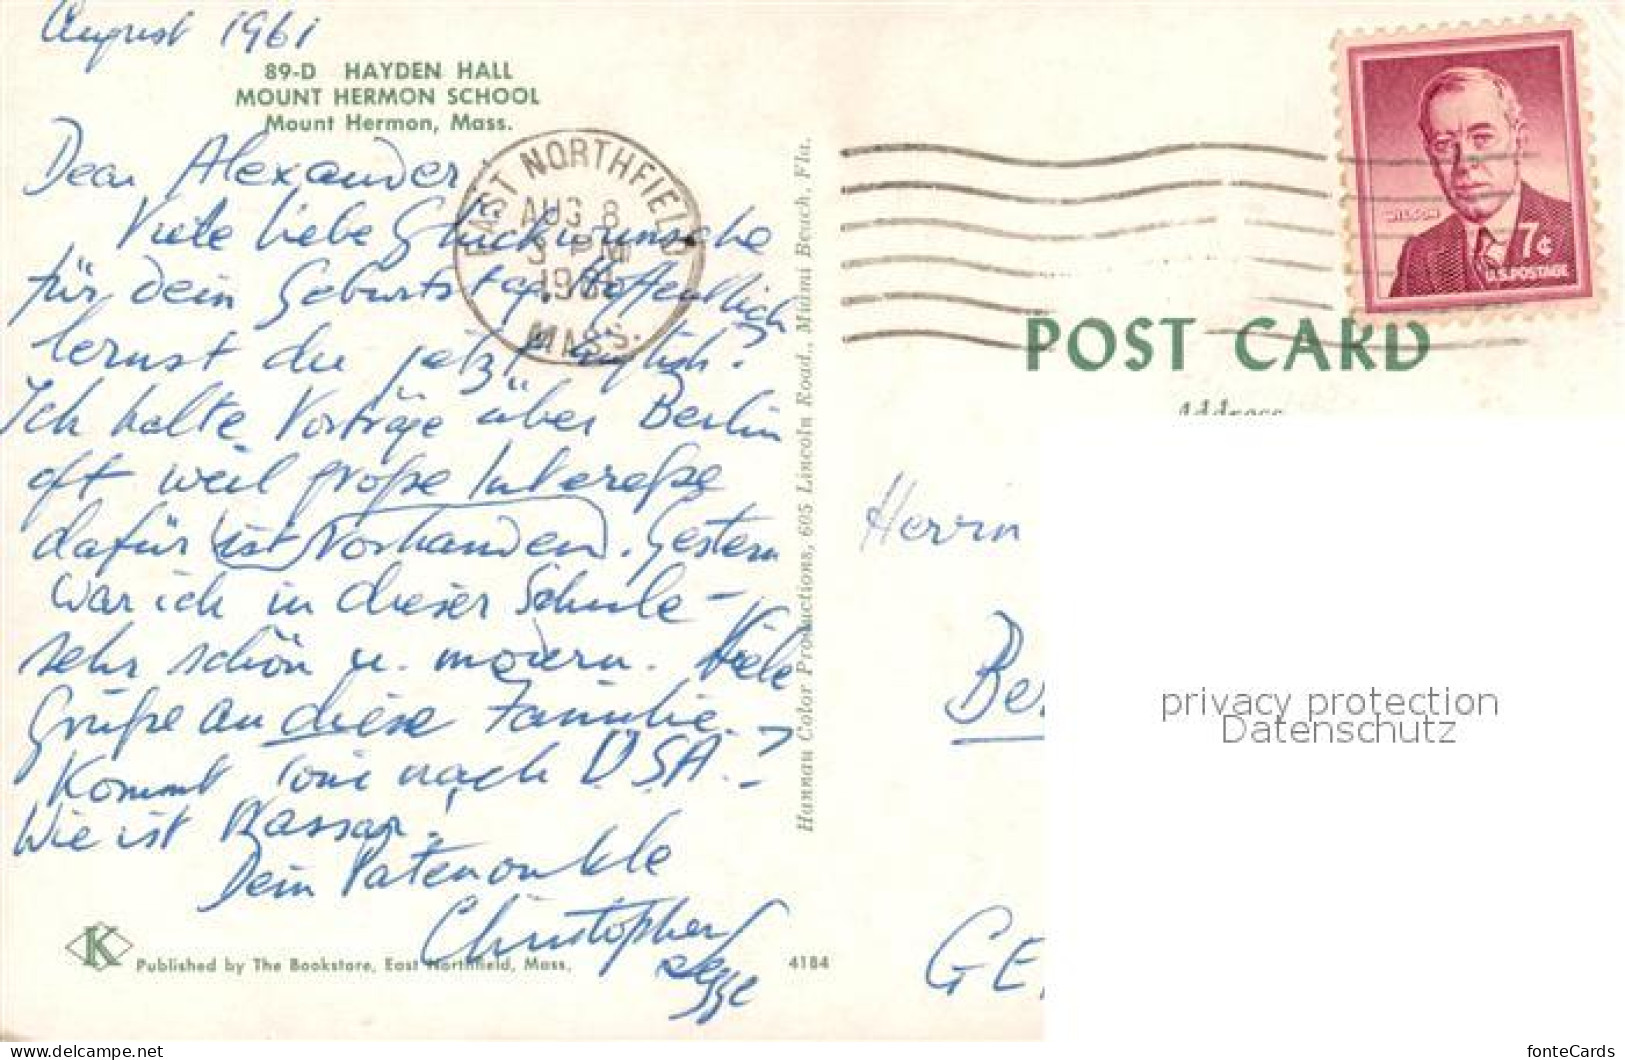 August 1961
89-D HAYDEN HALL
MOUNT HERMON SCHOOL
Mount Hermon, Mass.
Dear Alexander
Viele liebe Glückwünsche
für dein Geburtstag, hoffentlich
lernst du jetzt
Ich halte Vorträge über Berlin
oft weil große Intereße
dafür ist vorhanden. Gestern
war ich in dieser Schule –
sehr schön u. modern. Viele
Grüße an diese Familie.
Kommt nach USA. –
Wie ist
Dein Patenonkle
Christopher
K
Published by The Bookstore, East Northfield, Mass.
4184
Hannau Color Productions, 605 Lincoln Road., Miami Beach, Fla.
EAST NORTHFIELD
AUG 8
3 PM
1961
MASS.
WILSON
7¢
U.S. POSTAGE
POST CARD
Address
Herrn
Be
GE
privacy protection
Datenschutz
https://www.delcampe.net
fonteCards